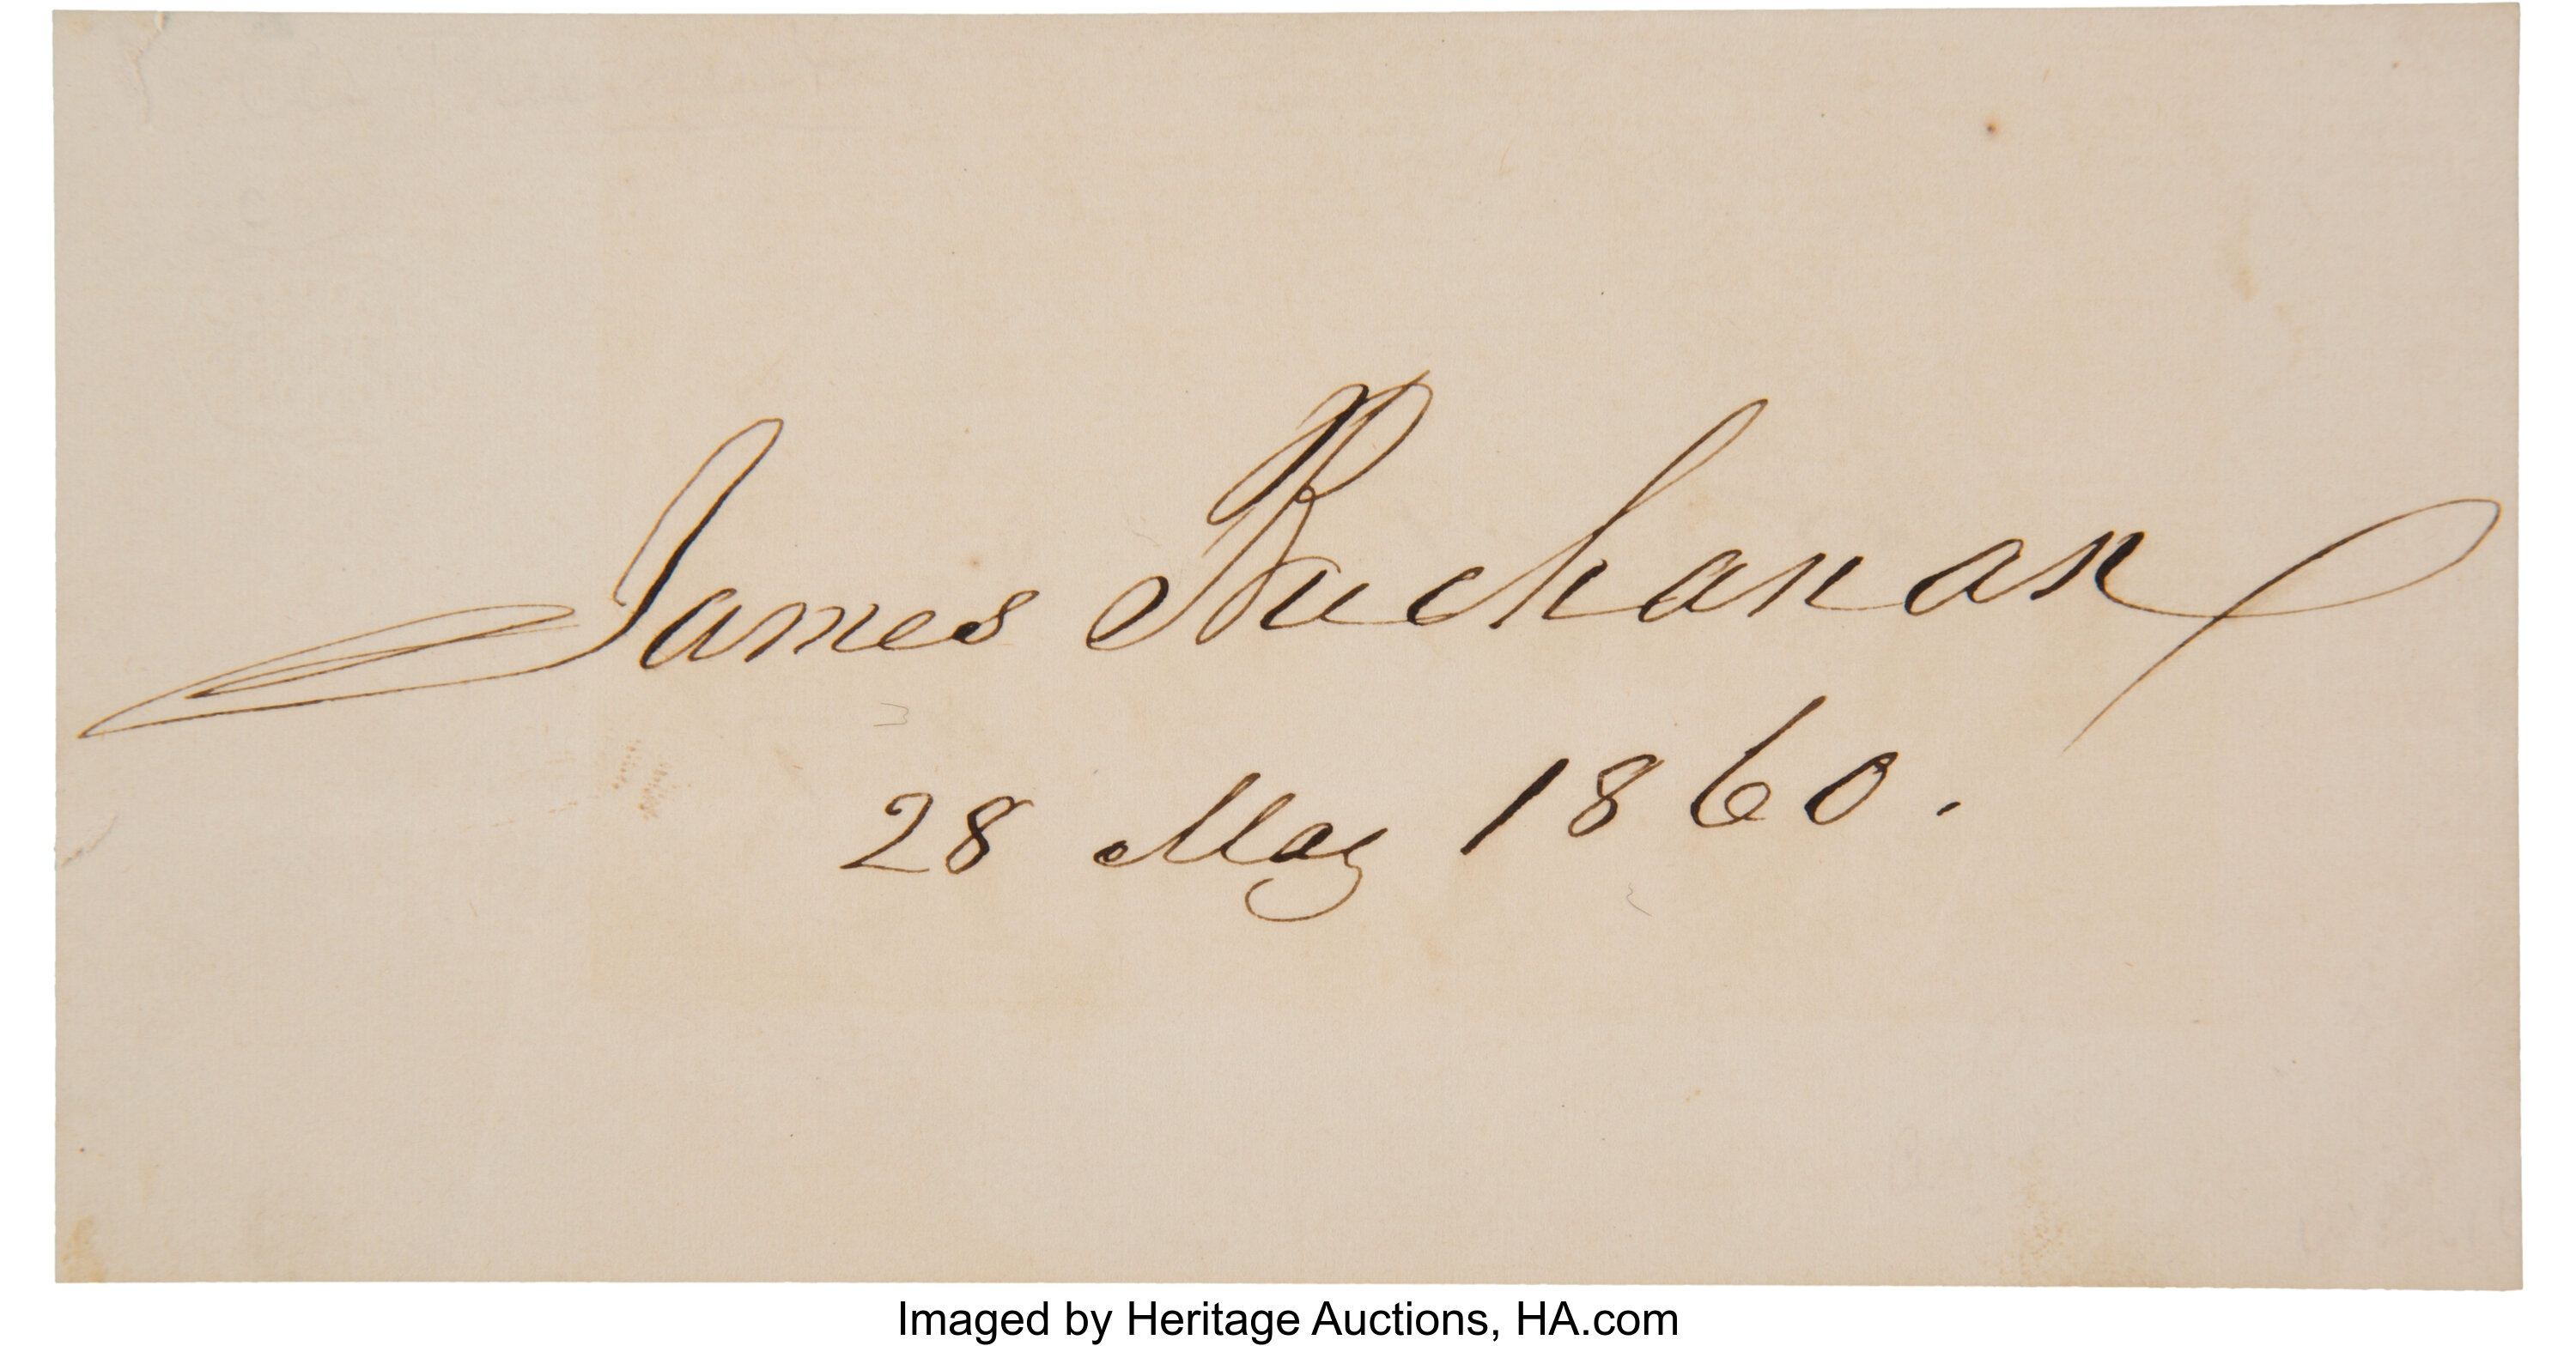 James Buchanan
28 May 1860.
Imaged by Heritage Auctions, HA.com